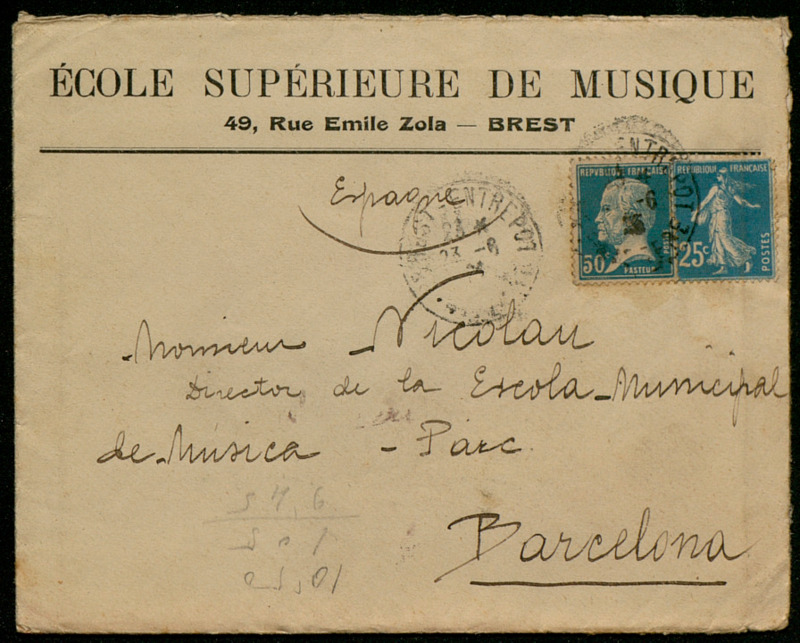 ÉCOLE SUPÉRIEURE DE MUSIQUE
49, Rue Emile Zola — BREST
Espagne
BREST-ENTREPOT
23 -6
REPVBLIQUE FRANCAISE
50
PASTEUR
REPUBLIQUE FRANÇAISE
25c
POSTES
Monsieur Nicolau
Director de la Escola Municipal
de Música - Parc
Barcelona